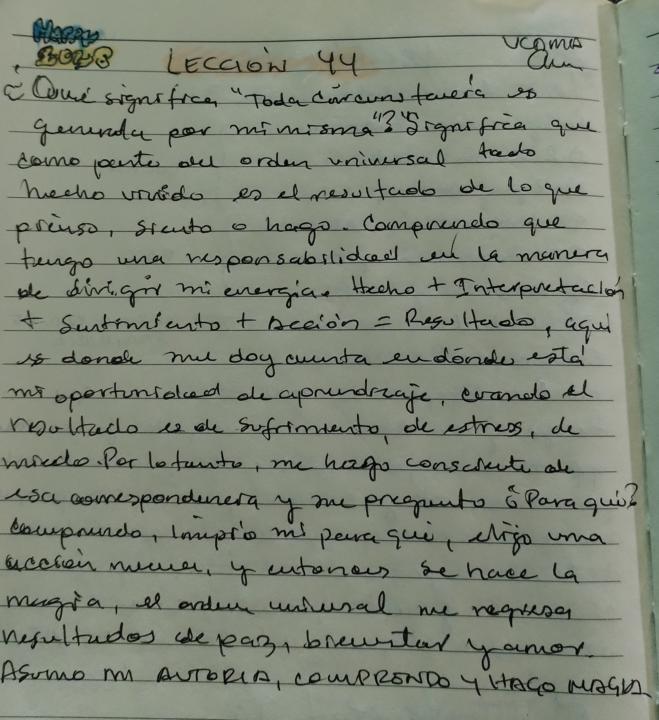 HAPPY
LECCIÓN 44
¿Qué significa, "Toda circunstancia es
generada por mi misma"? Significa que
como parte del orden universal todo
hecho vivido es el resultado de lo que
pienso, siento o hago. Comprendo que
tengo una responsabilidad en la manera
de dirigir mi energía. Hecho + Interpretación
+ Sentimiento + Acción = Resultado, aqui
es donde me doy cuenta en dónde está
mi oportunidad de aprendizaje, cuando el
resultado es de sufrimiento, de estress, de
miedo. Por lo tanto, me hago consciente de
esa correspondencia y me pregunto ¿Para qué?
Comprendo, limpio mi para qué, elijo una
acción nueva, y entonces se hace la
magia, el orden universal me regresa
resultados de paz, bienestar y amor.
ASUMO MI AUTORIA, COMPRENDO Y HAGO MAGIA